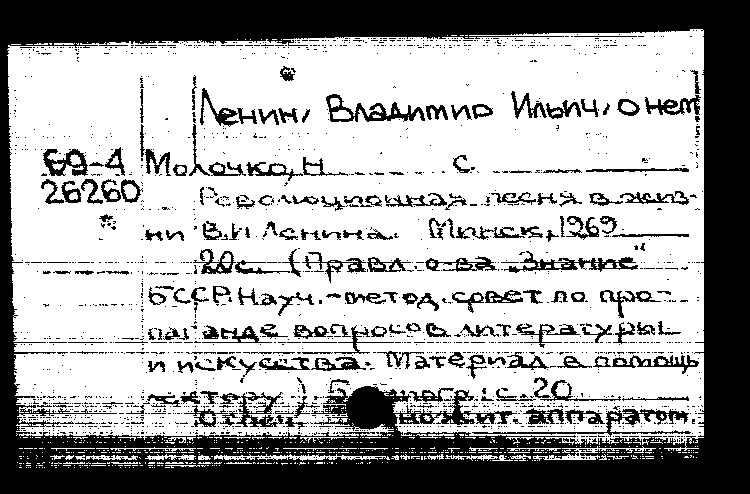 Ленин, Владимир Ильич, о нем
69-4 Молочко, Н. С.
26260 Революционная песня в жиз-
ни В.И Ленина. Минск, 1969
20с. (Правл. о-ва „Знание"
БССР. Науч.-метод. совет по про-
паганде вопросов литературы
и искусства. Материал в помощь
лектору). с. 20
множит. аппаратом.